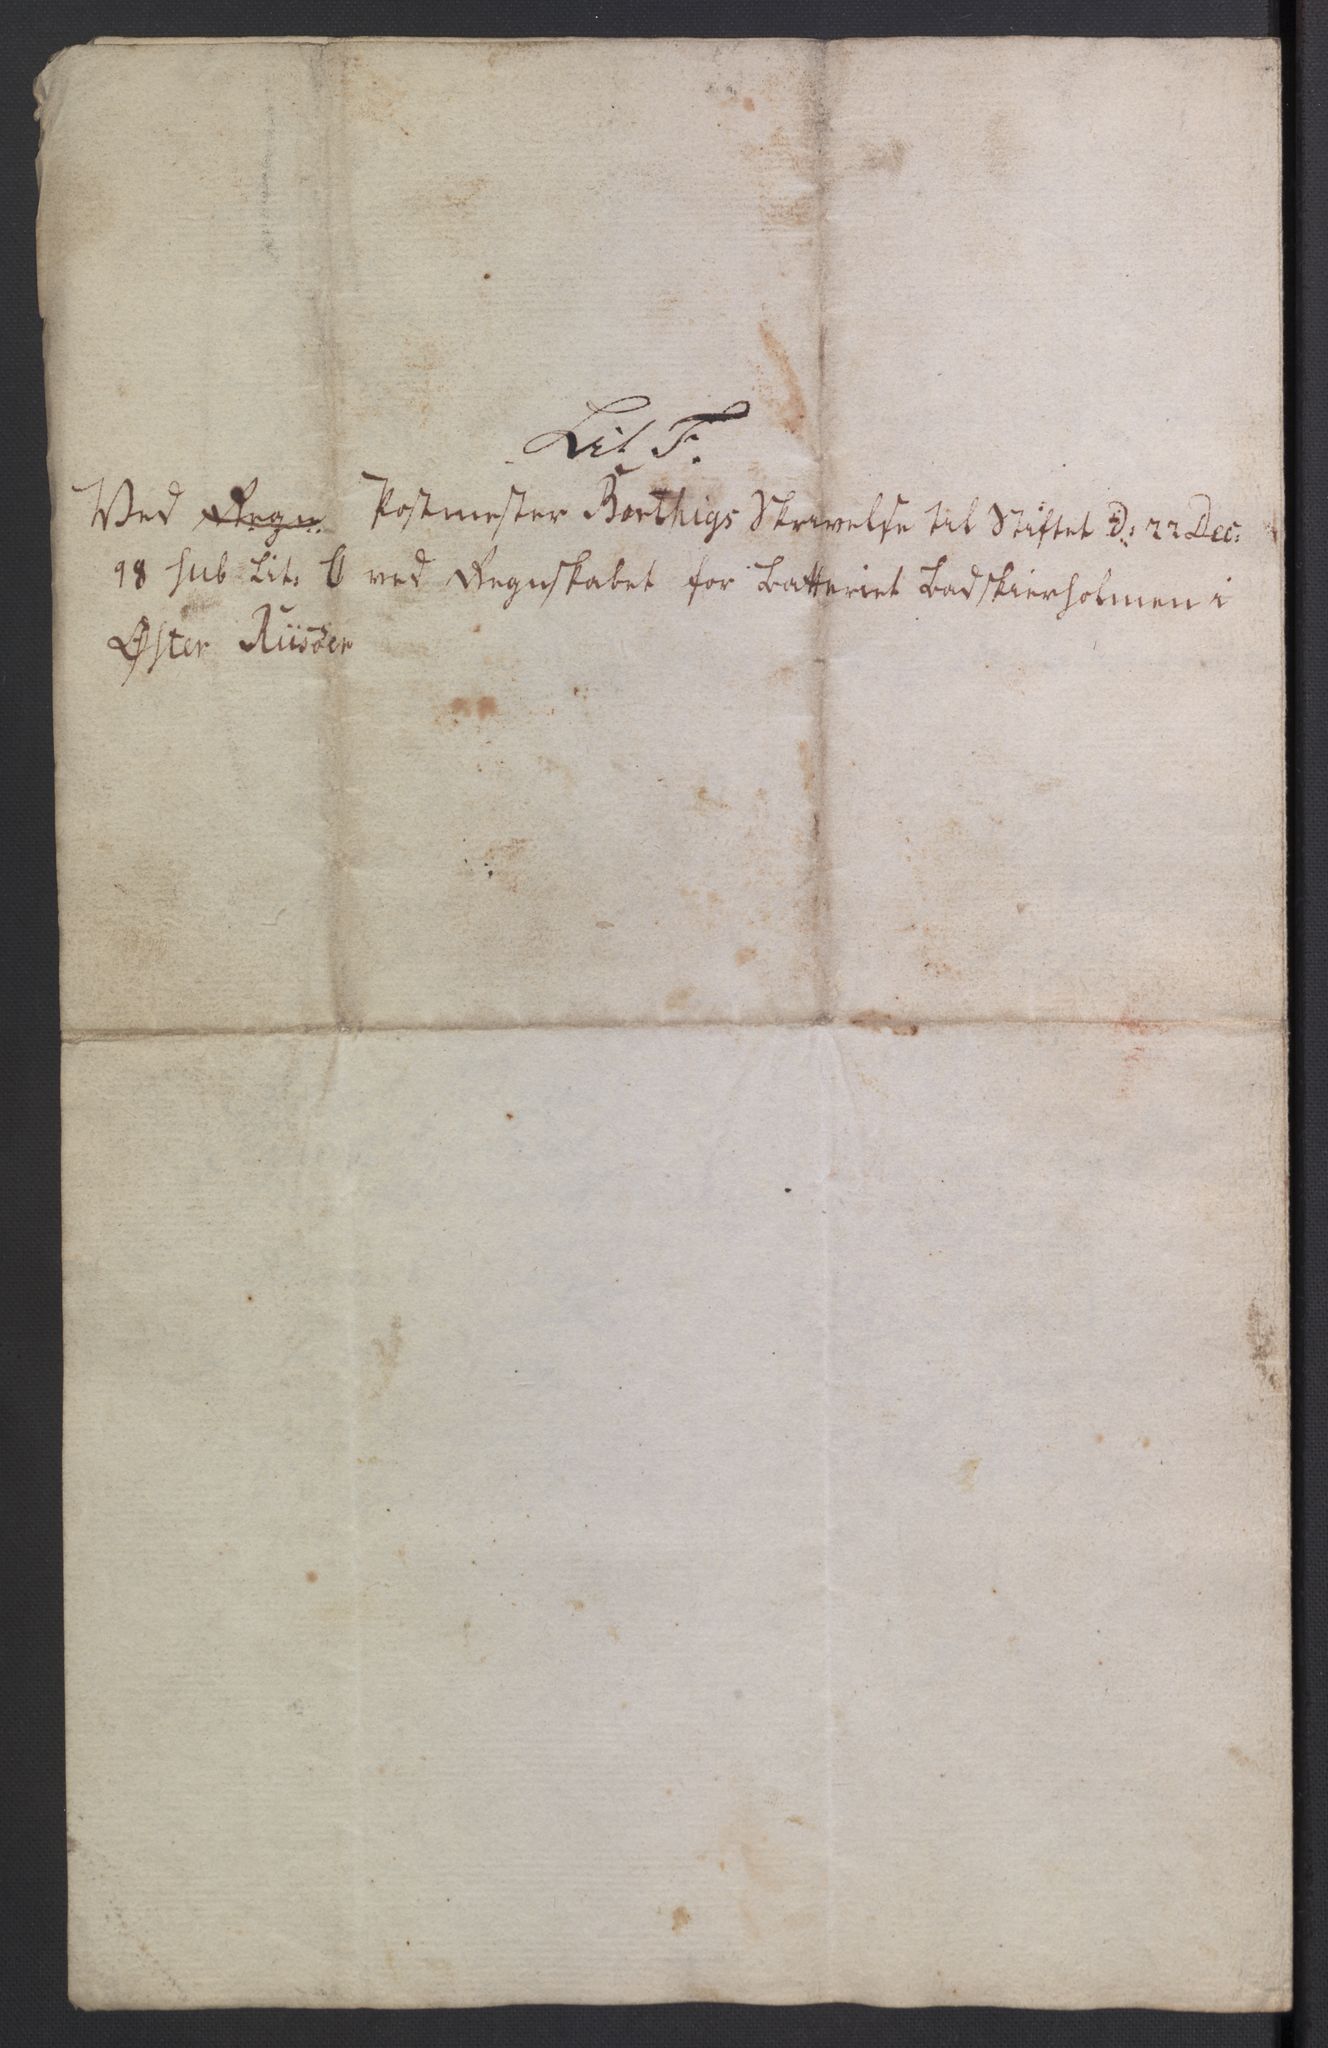 Lit F.
Ved Regn. Postmester Boethigs Skrivelse til Stiftet D: 22 Dec:
98 sub Lit. O ved Regnskabet for Batteriet Badskierholmen i
Øster Riisöer